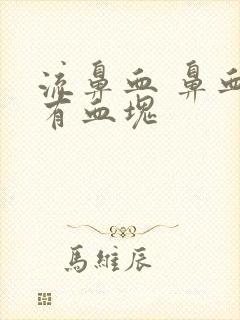 流鼻血 鼻血
有血塊
馬維辰